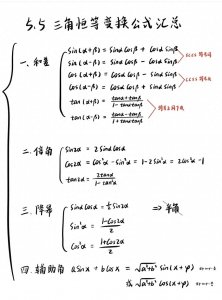 5.5 三角恒等变换公式汇总
一、和差
sin(α+β)= sinα cosβ + cosα sinβ
sin(α-β)= sinα cosβ - cosα sinβ
cos(α+β)= cosα cosβ - sinα sinβ
cos(α-β)= cosα cosβ + sinα sinβ
tan(α+β)= (tanα+tanβ)/(1-tanα tanβ)
tan(α-β)= (tanα-tanβ)/(1+tanα tanβ)
二、倍角
sin2α = 2 sinα cosα
cos2α = cos²α - sin²α = 1-2sin²α = 2cos²α-1
tan2α = 2tanα/(1-tan²α)
三、降幂
sinα cosα = ½ sin2α
sin²α = (1-cos2α)/2
⇒ 半角
cos²α = (1+cos2α)/2
四、辅助角 a sinx + b cosx = √(a²+b²) sin(x+φ)
或 √(a²+b²) cos(x+φ)